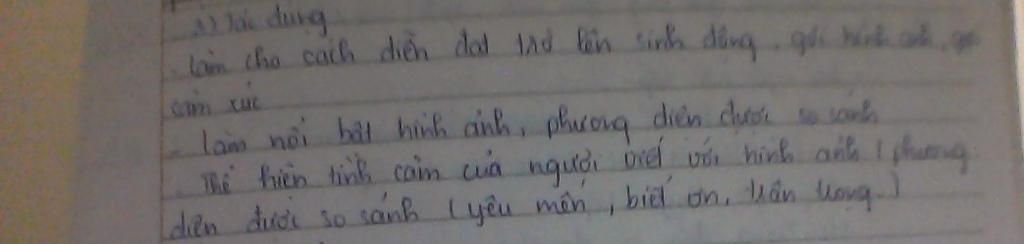 3) Tác dụng
- Làm cho cách diễn đạt trở lên sinh động, gợi hình ảnh, gợi
cảm xúc
- Làm nổi bật hình ảnh, phương diện được so sánh
- Thể hiện tình cảm của người viết với hình ảnh (phương
diện được so sánh (yêu mến, biết ơn, trân trọng.)